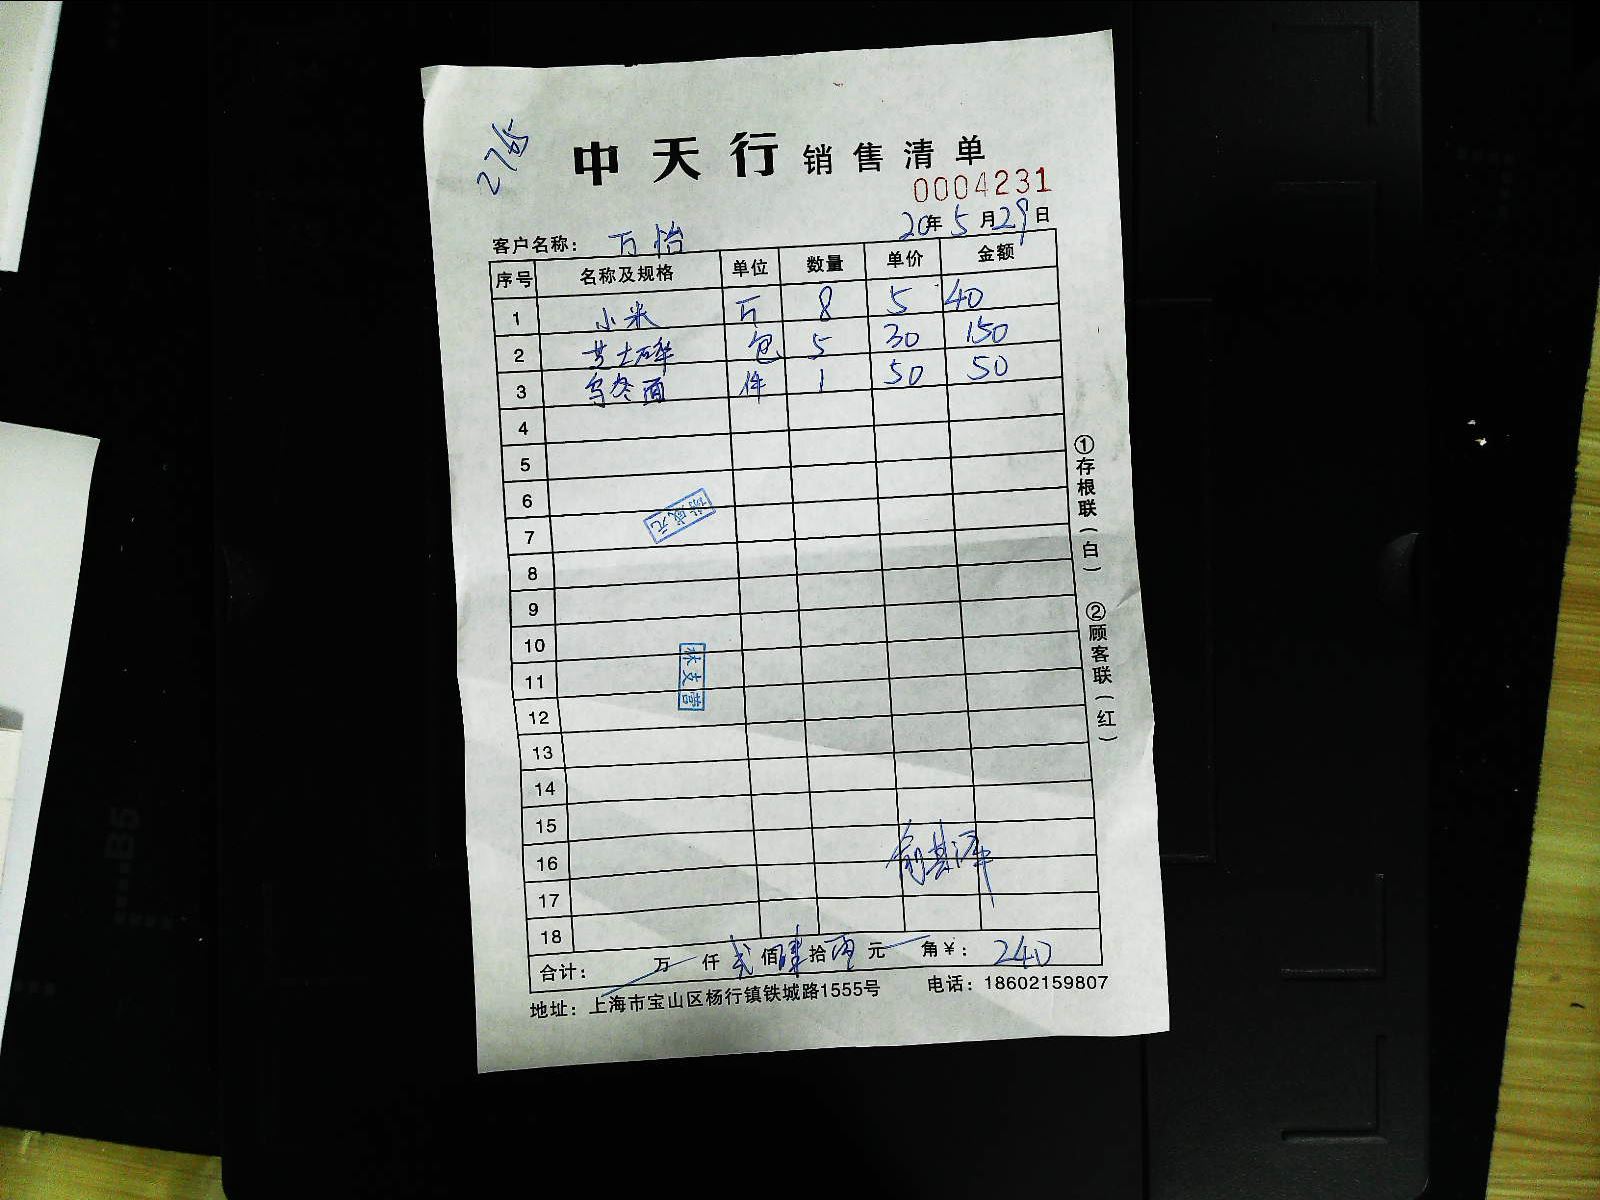 2765
中天行 销售清单
0004231
20年5月29日
客户名称： 万怡
序号 名称及规格 单位 数量 单价 金额
1 小米 斤 8 5 40
2 芝士碎 包 5 30 150
3 乌冬面 件 1 50 50
4
5
6
7
8
9
10
11
12
13
14
15
16
17
18
林支营
合计： 万 仟 贰 佰 肆 拾 元 角 ￥： 240
地址：上海市宝山区杨行镇铁城路1555号 电话：18602159807
①存根联（白）
②顾客联（红）